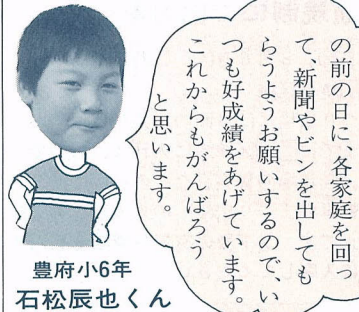 の前の日に、各家庭を回っ
て、新聞やビンを出しても
らうようお願いするので、い
つも好成績をあげています。
これからもがんばろう
と思います。
豊府小6年
石松辰也くん